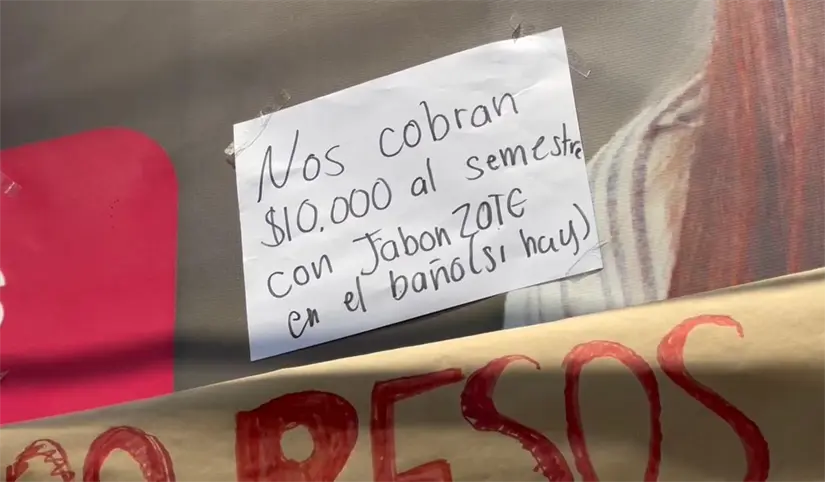 Nos cobran
$10.000 al semestre
con Jabon ZOTE
en el baño (si hay)
PESOS